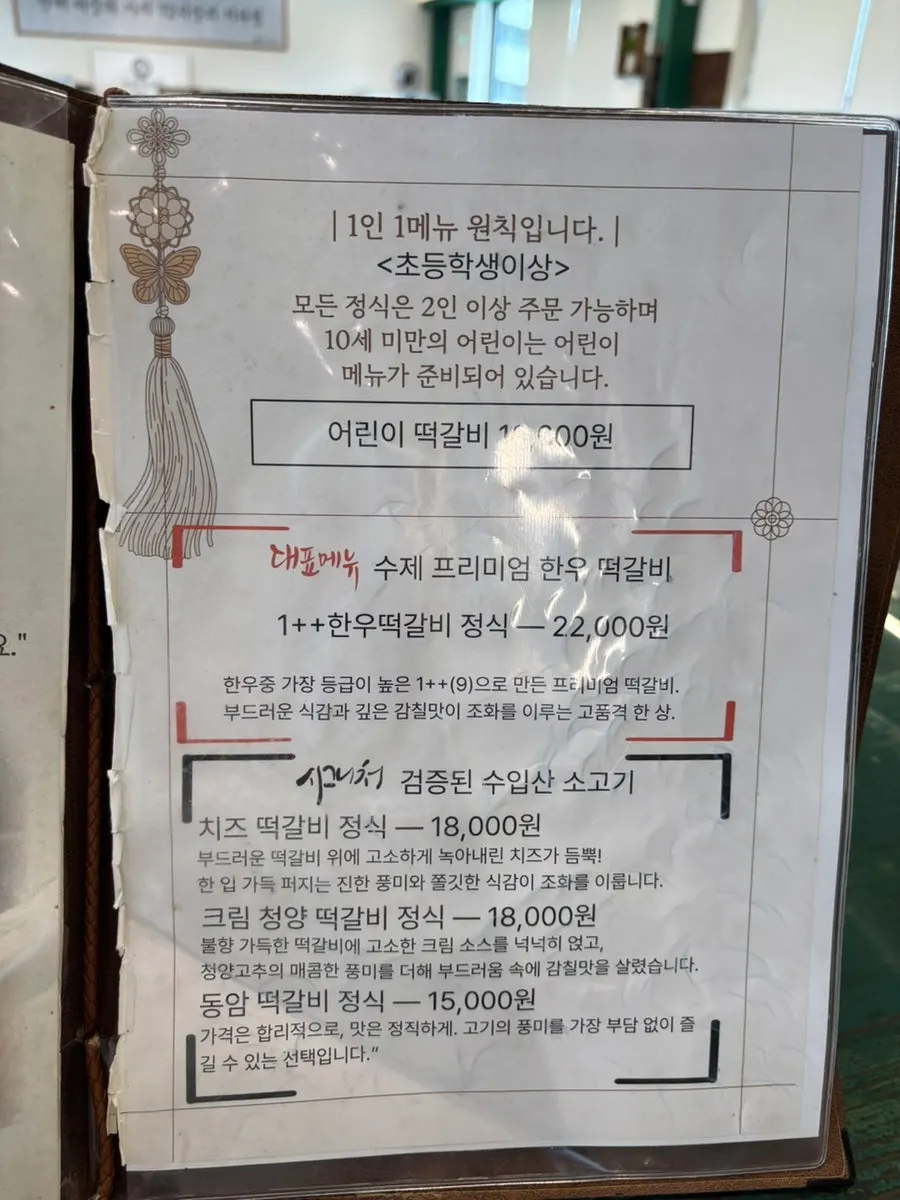 | 1인 1메뉴 원칙입니다. |
<초등학생이상>
모든 정식은 2인 이상 주문 가능하며
10세 미만의 어린이는 어린이
메뉴가 준비되어 있습니다.
어린이 떡갈비
대표메뉴 수제 프리미엄 한우 떡갈비
1++한우떡갈비 정식 — 22,000원
한우중 가장 등급이 높은 1++(9)으로 만든 프리미엄 떡갈비.
부드러운 식감과 깊은 감칠맛이 조화를 이루는 고품격 한 상.
시그니처 검증된 수입산 소고기
치즈 떡갈비 정식 — 18,000원
부드러운 떡갈비 위에 고소하게 녹아내린 치즈가 듬뿍!
한 입 가득 퍼지는 진한 풍미와 쫄깃한 식감이 조화를 이룹니다.
크림 청양 떡갈비 정식 — 18,000원
불향 가득한 떡갈비에 고소한 크림 소스를 넉넉히 얹고,
청양고추의 매콤한 풍미를 더해 부드러움 속에 감칠맛을 살렸습니다.
동암 떡갈비 정식 — 15,000원
가격은 합리적으로, 맛은 정직하게. 고기의 풍미를 가장 부담 없이 즐
길 수 있는 선택입니다."